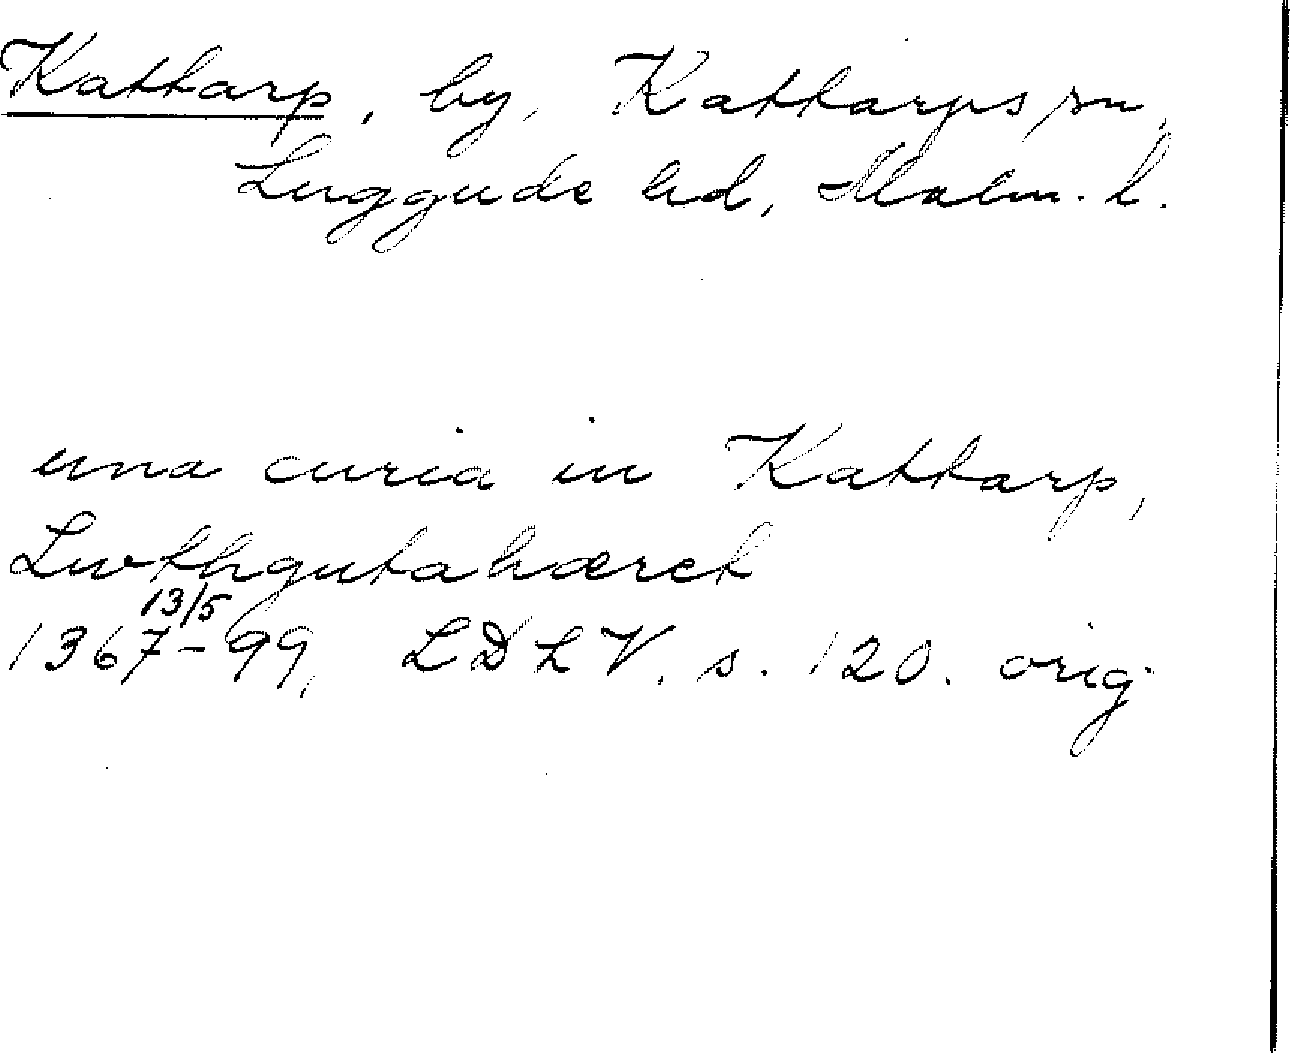 Kattarp, by, Kattarps sn,
Luggude hd, Malm. l.
una curia in Kattarp,
Lwthgutahæret
13/5
1367-99, LDLV. s. 120. orig.